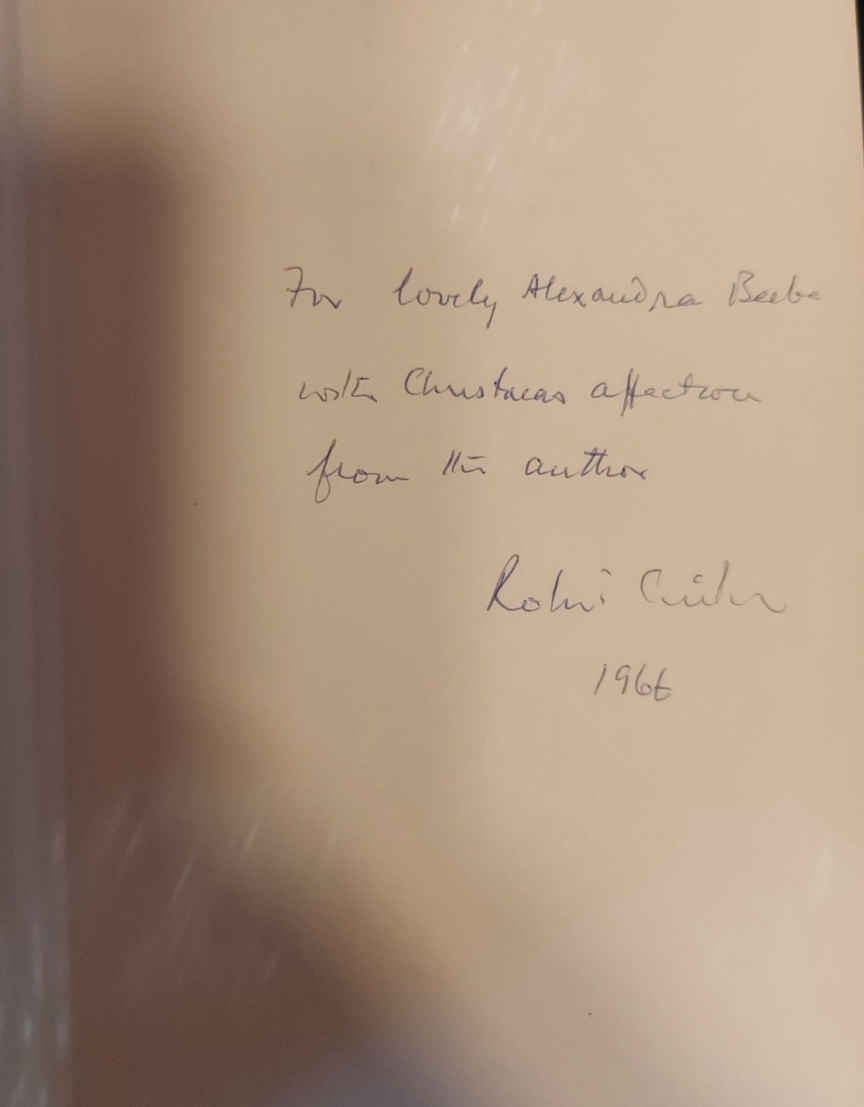 For lovely Alexandra Beebe
with Christmas affection
from the author
1966